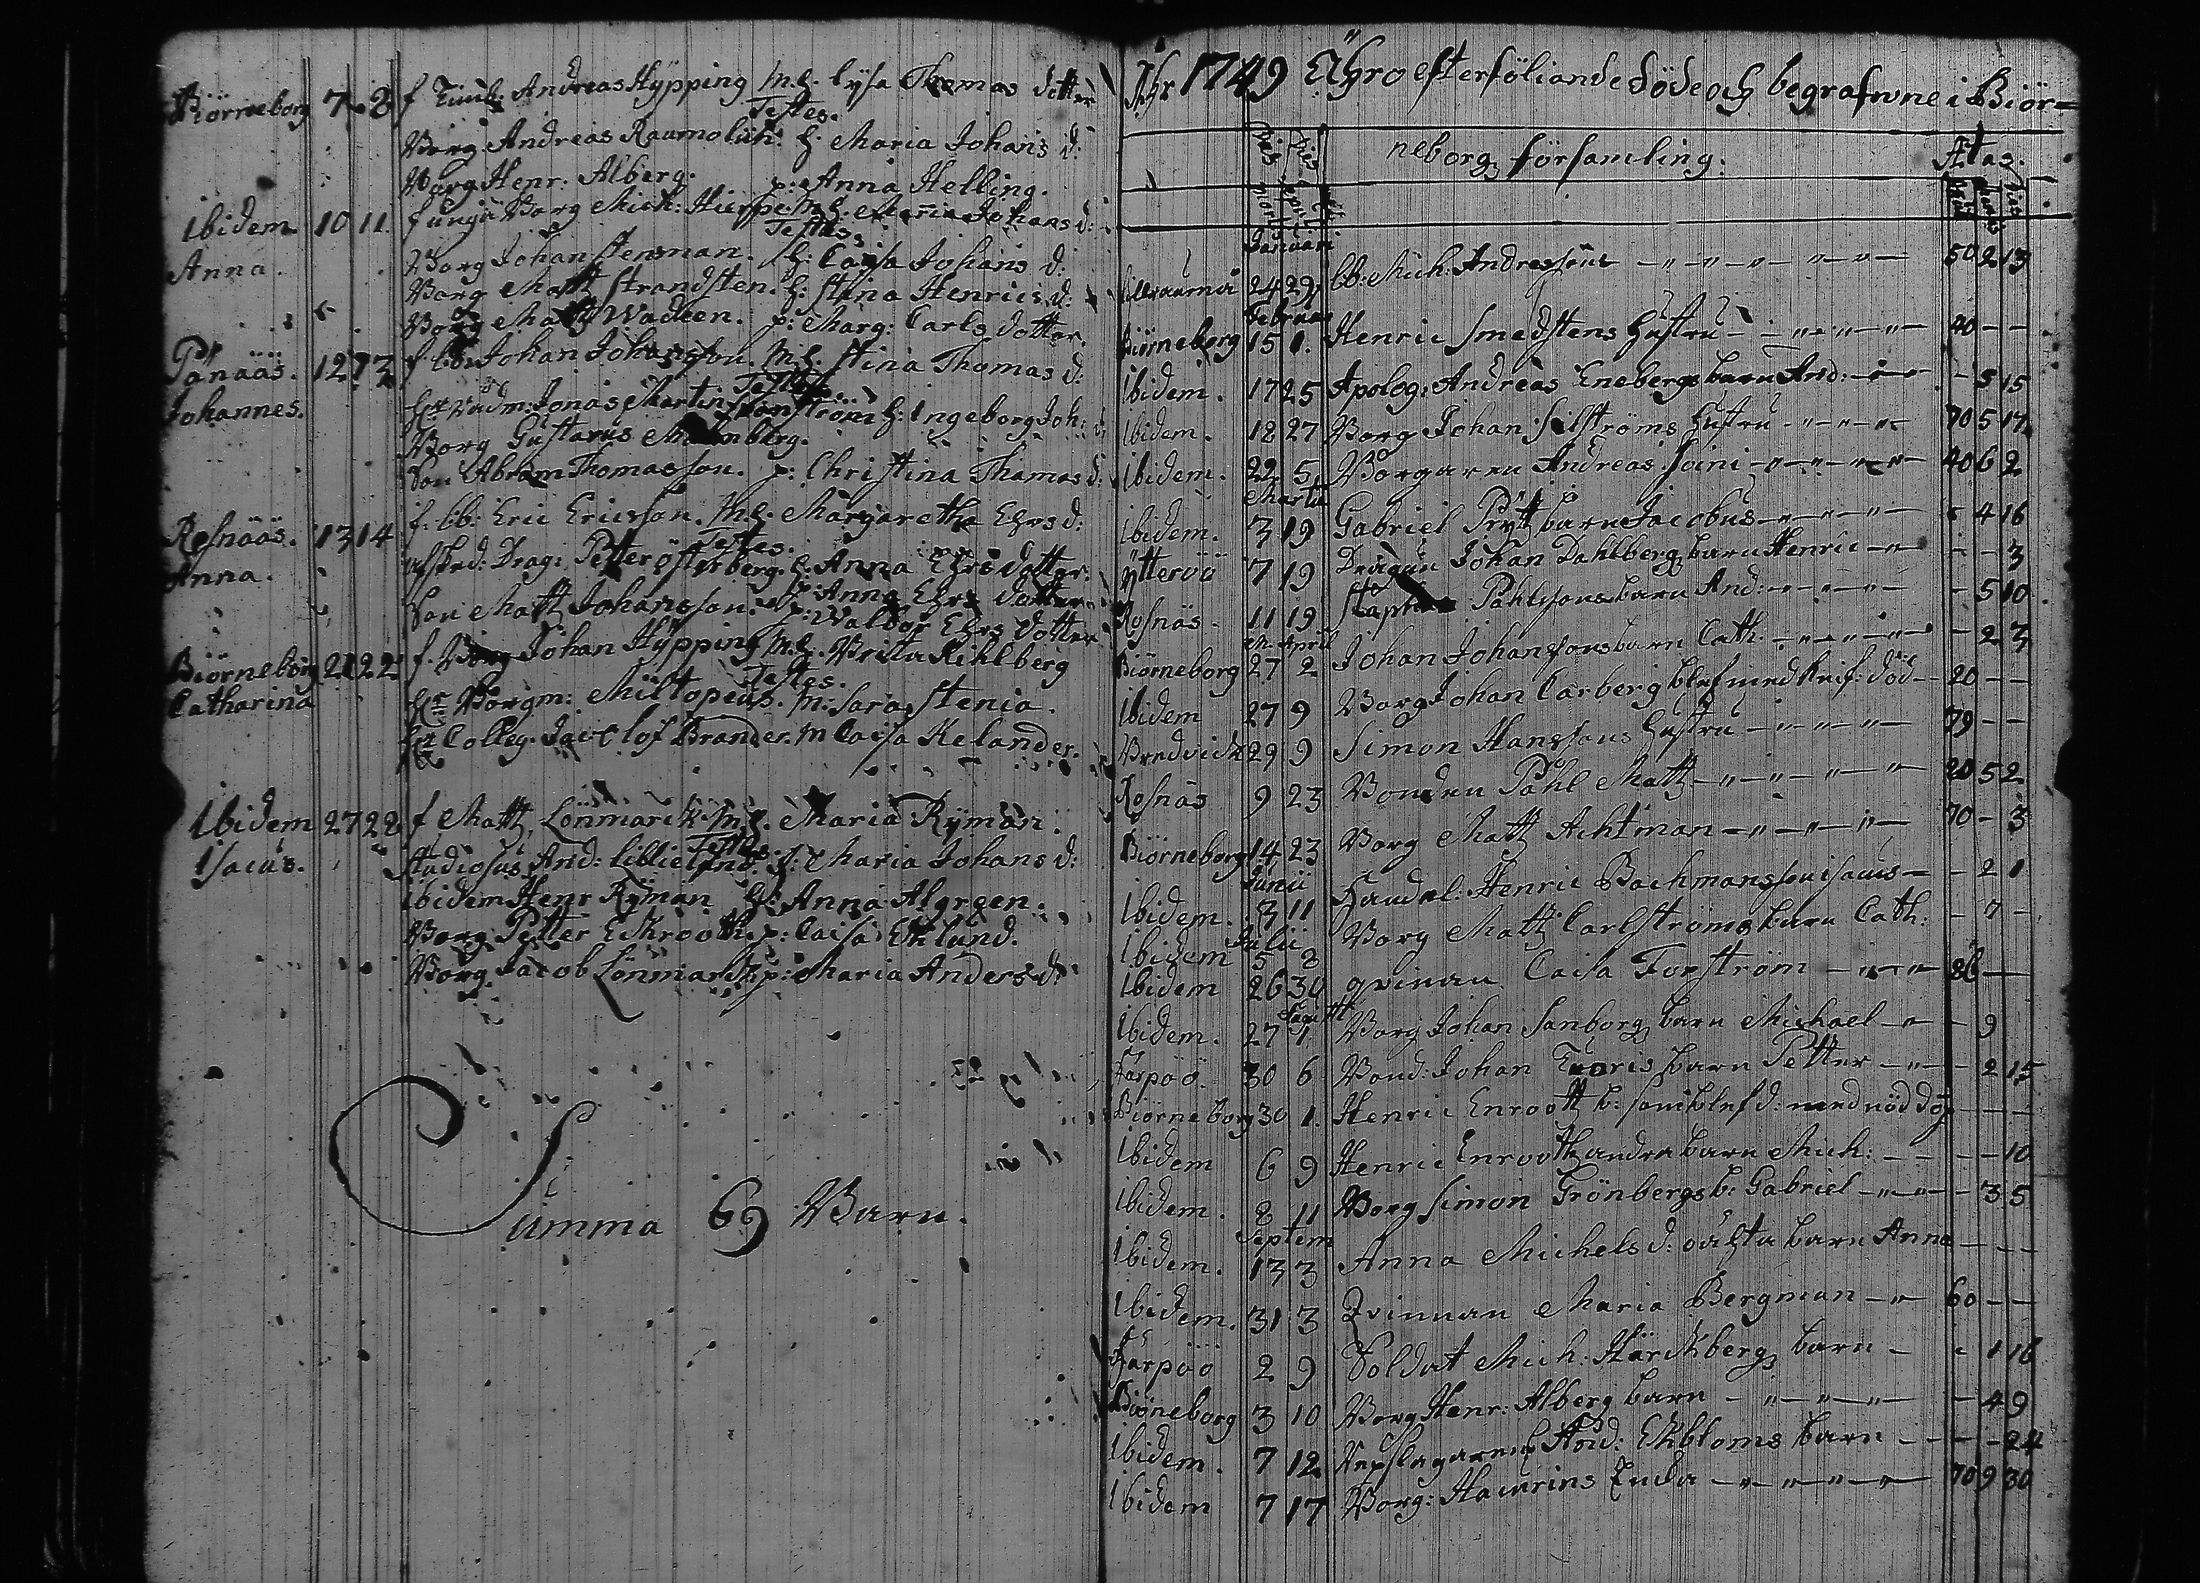 Biörneborg 7 8 f Timb: Andreas Hÿpping M.h. Lysa Thomas dotter
Testes.
Borg Andreas Raumolin. h. Maria Johans d:
Borg Henr: Alberg. p: Anna Helling.
Ibidem 10 11 f unga Borg Mich: Hierpe M.h. Maria Johans d:
Testes.
Anna. Borg Johan Stensman. h: Caisa Johans d:
Borg Matt Strandsten. h: Stina Henrics d:
Borg Matt Wadeen. p: Marg: Carls dotter.
Pånääs. 12 13 f. bb: Johan Johansson. M.h. Stina Thomas d:
Testes.
Johannes. Hr Rådm: Jonas Martin h: Ingeborg Joh: d:
Borg Gustavus Malmberg.
Son Abram Thomasson. p: Christina Thomas d:
Rosnääs. 13 14 f: bb: Eric Ericsson. M.h. Margaretha Ehrs d:
Testes.
Anna. afsked: Drag: Petter Österberg. h. Anna Ehrs dotter.
Son Matt Johansson. p: Anna Ehrs dotter
p: Walbor Ehrs dotter
Biörneborg 21 22 f. Borg Johan Hÿpping M.h. Brita Kihlberg
Testes.
Catharina Hr Borgm: Miltopeus. M: Sara Stenia.
Hr Colleg. Jac Olof Brander. M Caisa Kelander.
Ibidem 27 28 f Matt Lönmarck M.h. Maria Rÿman.
Testes.
Isacus. Studiosus And: Lilliefund. J: Maria Johans d:
ibidem Henr Rÿman h: Anna Algreen.
Borg Petter Eckrooth p: Caisa Eklund.
Borg Jacob Lönmarck p: Maria Anders d:
Summa 69 Barn.
Åhr 1749 Ähro efterföliande döde och begrafwne i Biör=
neborg församling: Ætas.
Januari
Ulfraumå 24 29 bb: Mich: Andersson 50 2 13
Februar
Biörneborg 15 1. Henric Smedstens hustru 40
Ibidem. 17 25 Apolog: Andreas Enebergs barn And: 5 15
Ibidem. 18 27 Borg Johan Silströms hustru 70 5 17
Ibidem. 22 5 Borgaren Andreas Soini 40 6 2
Martii
Ibidem. 3 19 Gabriel Prÿtt barn Jacobus 4 16
Ÿtteröö 7 19 Dragun Johan Dahlberg barn Henric 3
Rosnäs. 11 19 Påhlssons barn And: 5 10
M April
Biörneborg 27 2 Johan Johanssons barn Cath: 2 3
Ibidem 27 9 Borg Johan Carberg blef med knif: död 20
Bredvick 29 9 Simon Hanssons hustru 79
Rosnäs 9 23 Bonden Påhl Matt 20 5 2
Biörneborg 14 23 Borg Matt Achtman 70 3
Junii
Ibidem. 3 11 Handel: Henric Bachmans son Isacus 2 1
Julii
Ibidem 5 8 Borg Matt Carlströms barn Cath: 7
Ibidem 26 30 qvinan Caisa Forström 86
Augusti
Ibidem. 27 1 Borg Johan Sanborg barn Michael 9
Torpöö. 30 6 Bond: Johan Tuoris barn Petter 2 15
Biörneborg 30 1. Henric Enrooth b: som blef d: med nöd döp
Ibidem 6 9 Henric Enrooth andra barn Mich: 10
Ibidem. 8 11 Borg Simon Grönbergs b: Gabriel 3 5
Septem
Ibidem. 13 3 Anna Michels d: oächta barn Anna
Ibidem. 31 3 Qvinnan Maria Bergman 60
Torpöö 2 9 Soldat Mich: Härckberg barn 1 16
Biöneborg 3 10 Borg Henr: Alberg barn 4 9
Ibidem. 7 12 Repslagaren And: Ekbloms barn 24
Ibidem 7 17 Borg: Haurins Enka 70 9 30